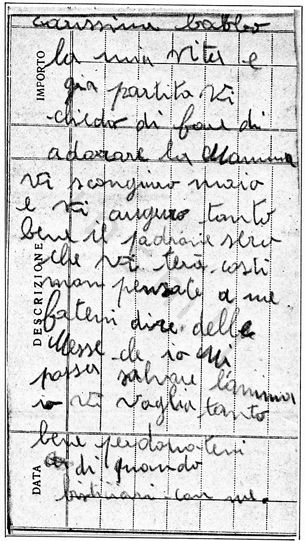 carissimo babbo
la mia vita e
gia partita Vi
chiedo di fare di
adorare la Mamma
Vi scongiuro muoio
e Vi auguro tanto
bene il padrone sero
che Vi terà costi
man pensate a me
fatemi dire delle
Messe che io mi
possa salvare l'animia
io Vi voglio tanto
bene perdonatemi
di quando
bisticiari con me.
IMPORTO
DESCRIZIONE
DATA